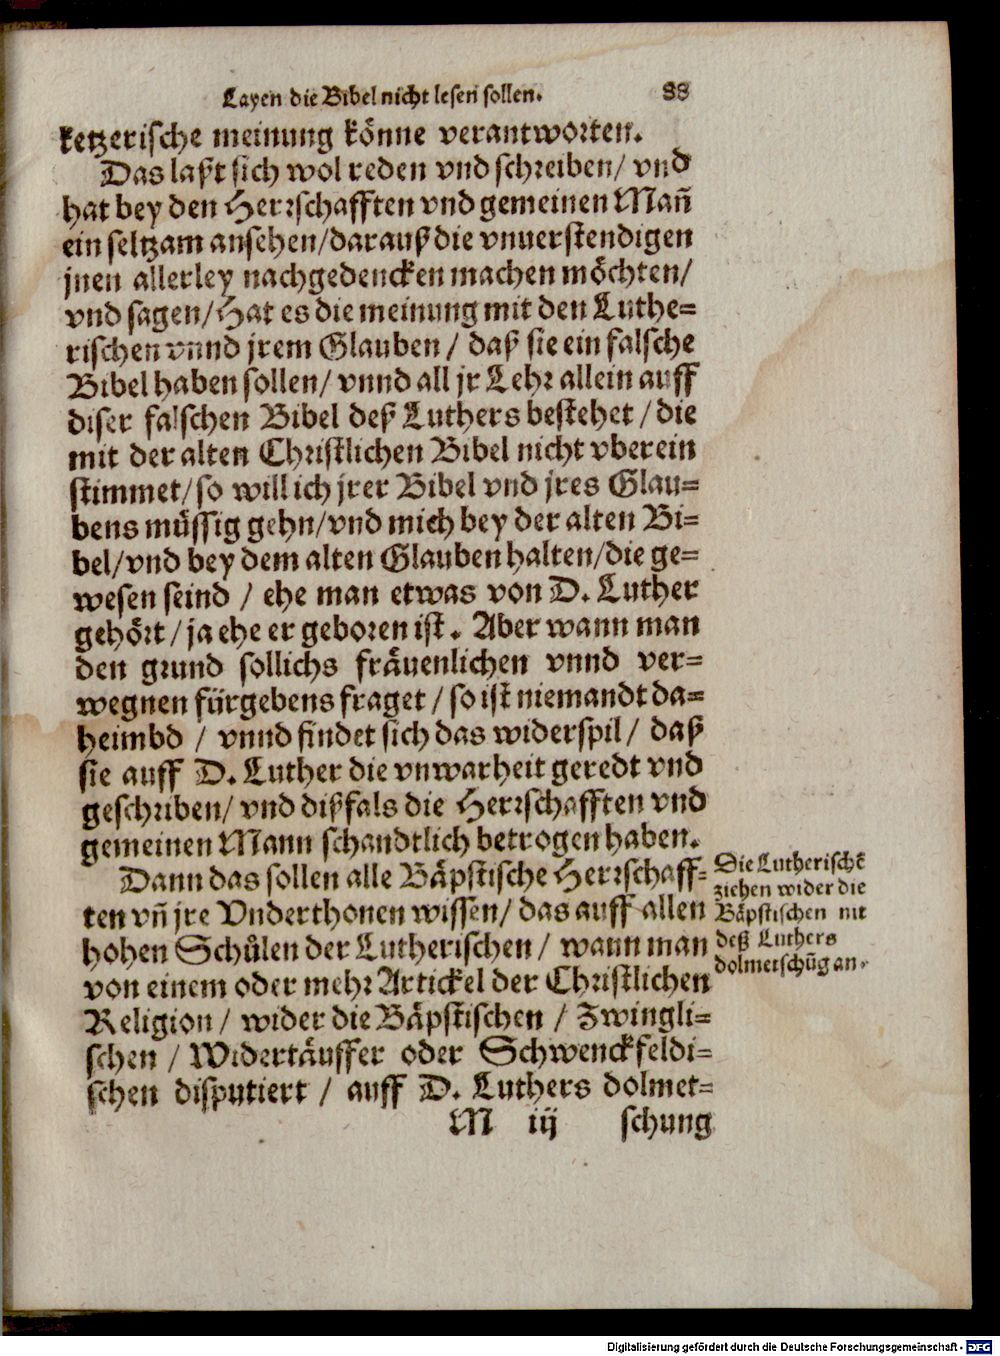 Layen die Bibel nicht lesen sollen. 88
ketzerische meinung könne verantworten.
Das laßt sich wol reden vnd schreiben/ vnd
hat bey den Herrschafften vnd gemeinen Mañ
ein seltzam ansehen/darauß die vnuerstendigen
jnen allerley nachgedencken machen möchten/
vnd sagen/Hat es die meinung mit den Luthe=
rischen vnnd jrem Glauben / daß sie ein falsche
Bibel haben sollen/ vnnd all jr Lehr allein auff
diser falschen Bibel deß Luthers bestehet / die
mit der alten Christlichen Bibel nicht vberein
stimmet/so will ich jrer Bibel vnd jres Glau=
bens müssig gehn/vnd mich bey der alten Bi=
bel/vnd bey dem alten Glauben halten/die ge=
wesen seind / ehe man etwas von D. Luther
gehört / ja ehe er geboren ist. Aber wann man
den grund sollichs fräuenlichen vnnd ver=
wegnen fürgebens fraget / so ist niemandt da=
heimbd / vnnd findet sich das widerspil/ daß
sie auff D. Luther die vnwarheit geredt vnd
geschriben/ vnd dißfals die Herrschafften vnd
gemeinen Mann schandtlich betrogen haben.
Dann das sollen alle Bäpstische Herrschaff=
ten vñ jre Vnderthonen wissen/ das auff allen
hohen Schůlen der Lutherischen / wann man
von einem oder mehr Artickel der Christlichen
Religion / wider die Bäpstischen / Zwingli=
schen / Widertäuffer oder Schwenckfeldi=
schen disputiert / auff D. Luthers dolmet=
M iij schung
Die Lutherischẽ
ziehen wider die
Bäpstischen nit
deß Luthers
dolmetschũg an.
Digitalisierung gefördert durch die Deutsche Forschungsgemeinschaft - DFG